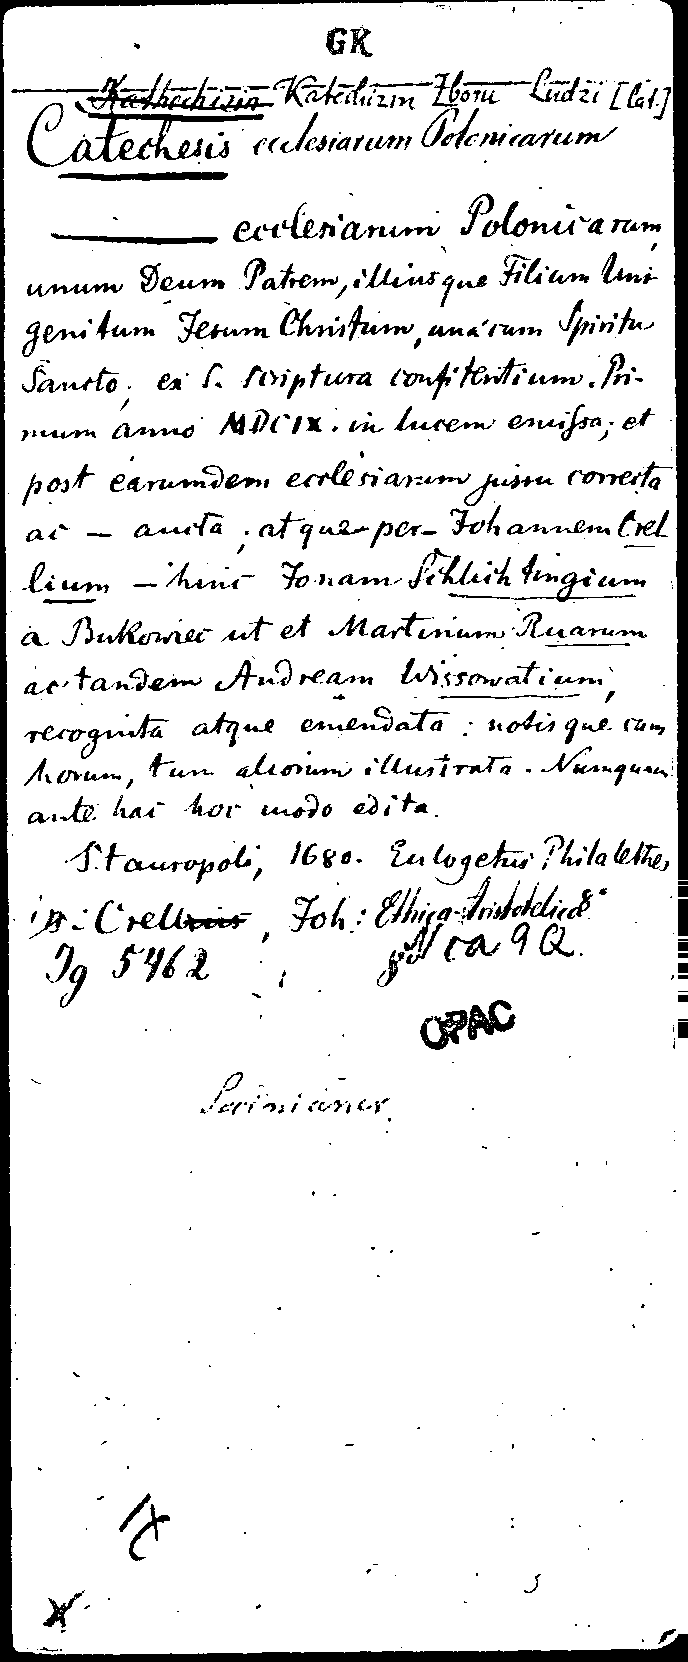 GK
Kathechizm Katechizm Zboru Ludzi [lat.]
Catechesis ecclesiarum Polonicarum
——— ecclesiarum Polonicarum,
unum Deum Patrem, illiusque Filium Uni-
genitum Jesum Christum, unà cum Spiritu
Sancto, ex S. scriptura confitentium. Pri-
mum anno MDCIX. in lucem emissa; et
post earumdem ecclesiarum jussu correcta
ac — aucta; atque per — Johannem Crel
lium — hinc Jonam Schlichtingium
a Bukowiec ut et Martinum Ruarum
ac tandem Andream Wissowatium,
recognita atque emendata: notisque cum
horum, tum aliorum illustrata. Numquam
ante hac hoc modo edita.
Stauropoli, 1680. Eulogetus Philalethes
in: Crellius, Joh: Ethica Aristotelica 8°
Jg 5462
ca 9 Q.
OPAC
Socinianer